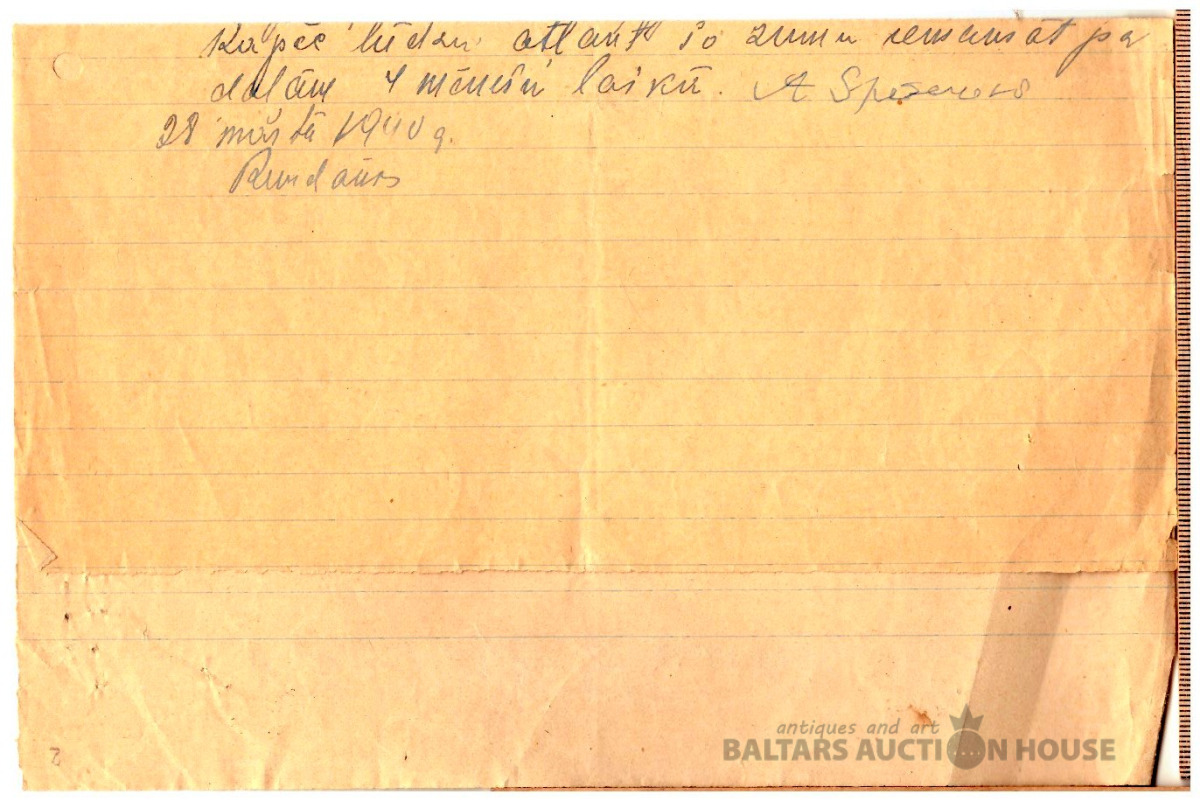 Kāpēc lūdzu atlaut šo sumu iemaksāt pa
daļām 4 mēnešu laikā. A
28 martā 1940 g.
Rundānos
antiques and art
BALTARS AUCTION HOUSE
2